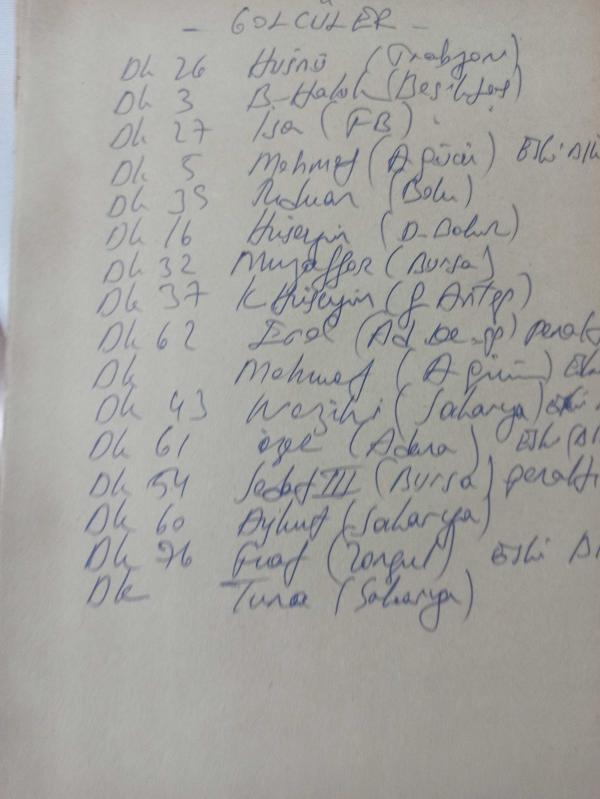 - GOLCÜLER -
Dk 26 Hüsnü (Trabzon)
Dk 3 B. Haluk (Beşiktaş)
Dk 27 İsa (FB)
Dk 5 Mehmet (A gücü) Eski
Dk 35 Rıdvan (Bolu)
Dk 16 Hüseyin (D. Bakır)
Dk 32 Muzaffer (Bursa)
Dk 37 K Hüseyin (G Antep)
Dk 62 Erol (Ad. De. sp)
Dk Mehmet (A gücü)
Dk 43 (Sakarya)
Dk 61 Özer (Adana) Eski
Dk 54 Sedat III (Bursa)
Dk 60 Aykut (Sakarya)
Dk 76 Fuat (Zongul) Eski
Dk Tuna (Sakarya)